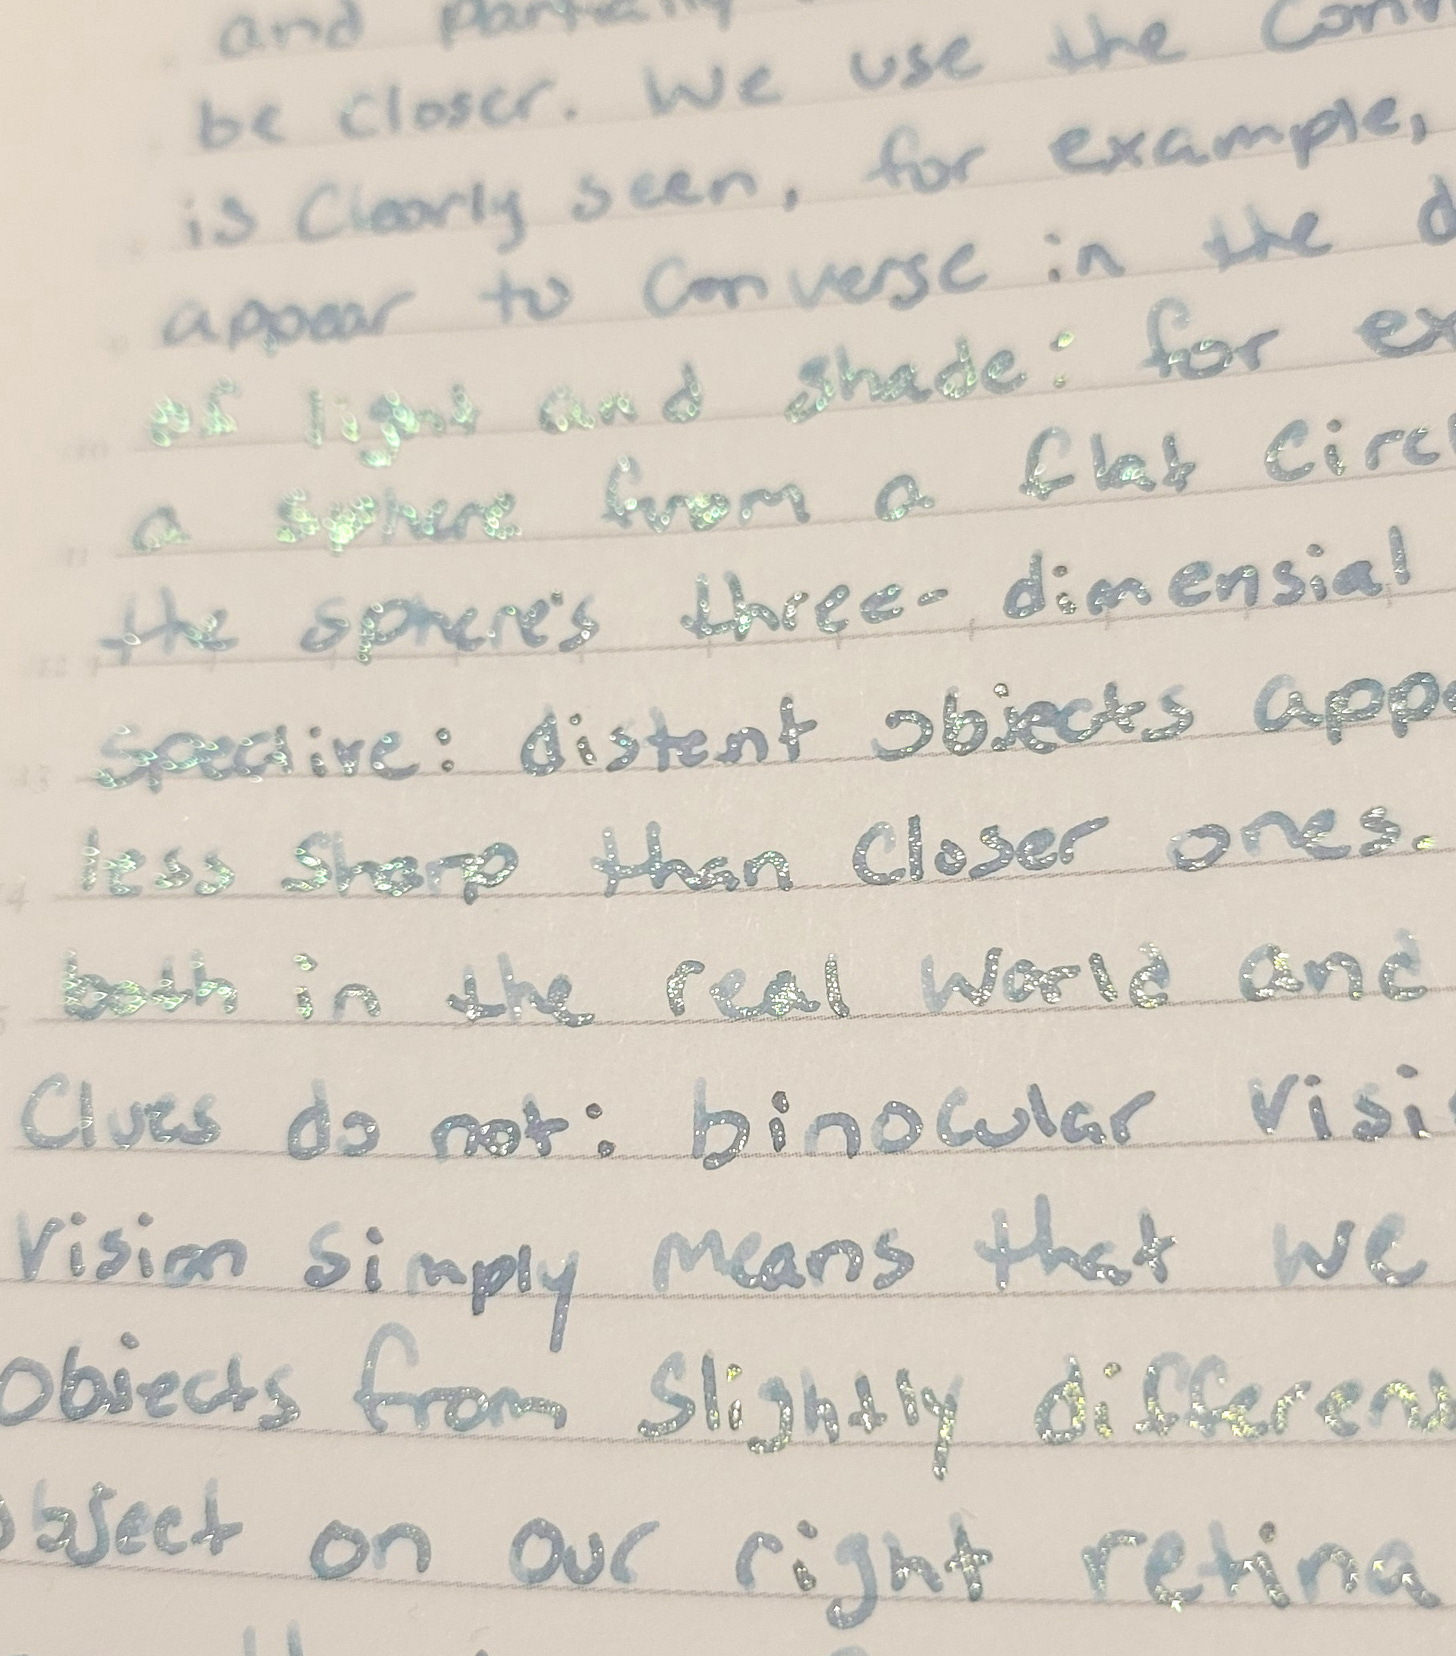 and partially
be closer. We use the
is Clearly seen, for example,
appear to Converse in the
of light and shade: for
a sphere from a flat
the sphere's three-dimensial
spective: distent objects
less sharp than Closer ones.
both in the real World and
Clues do not: binocular
Vision simply means that we
objects from slightly different
object on our right retina